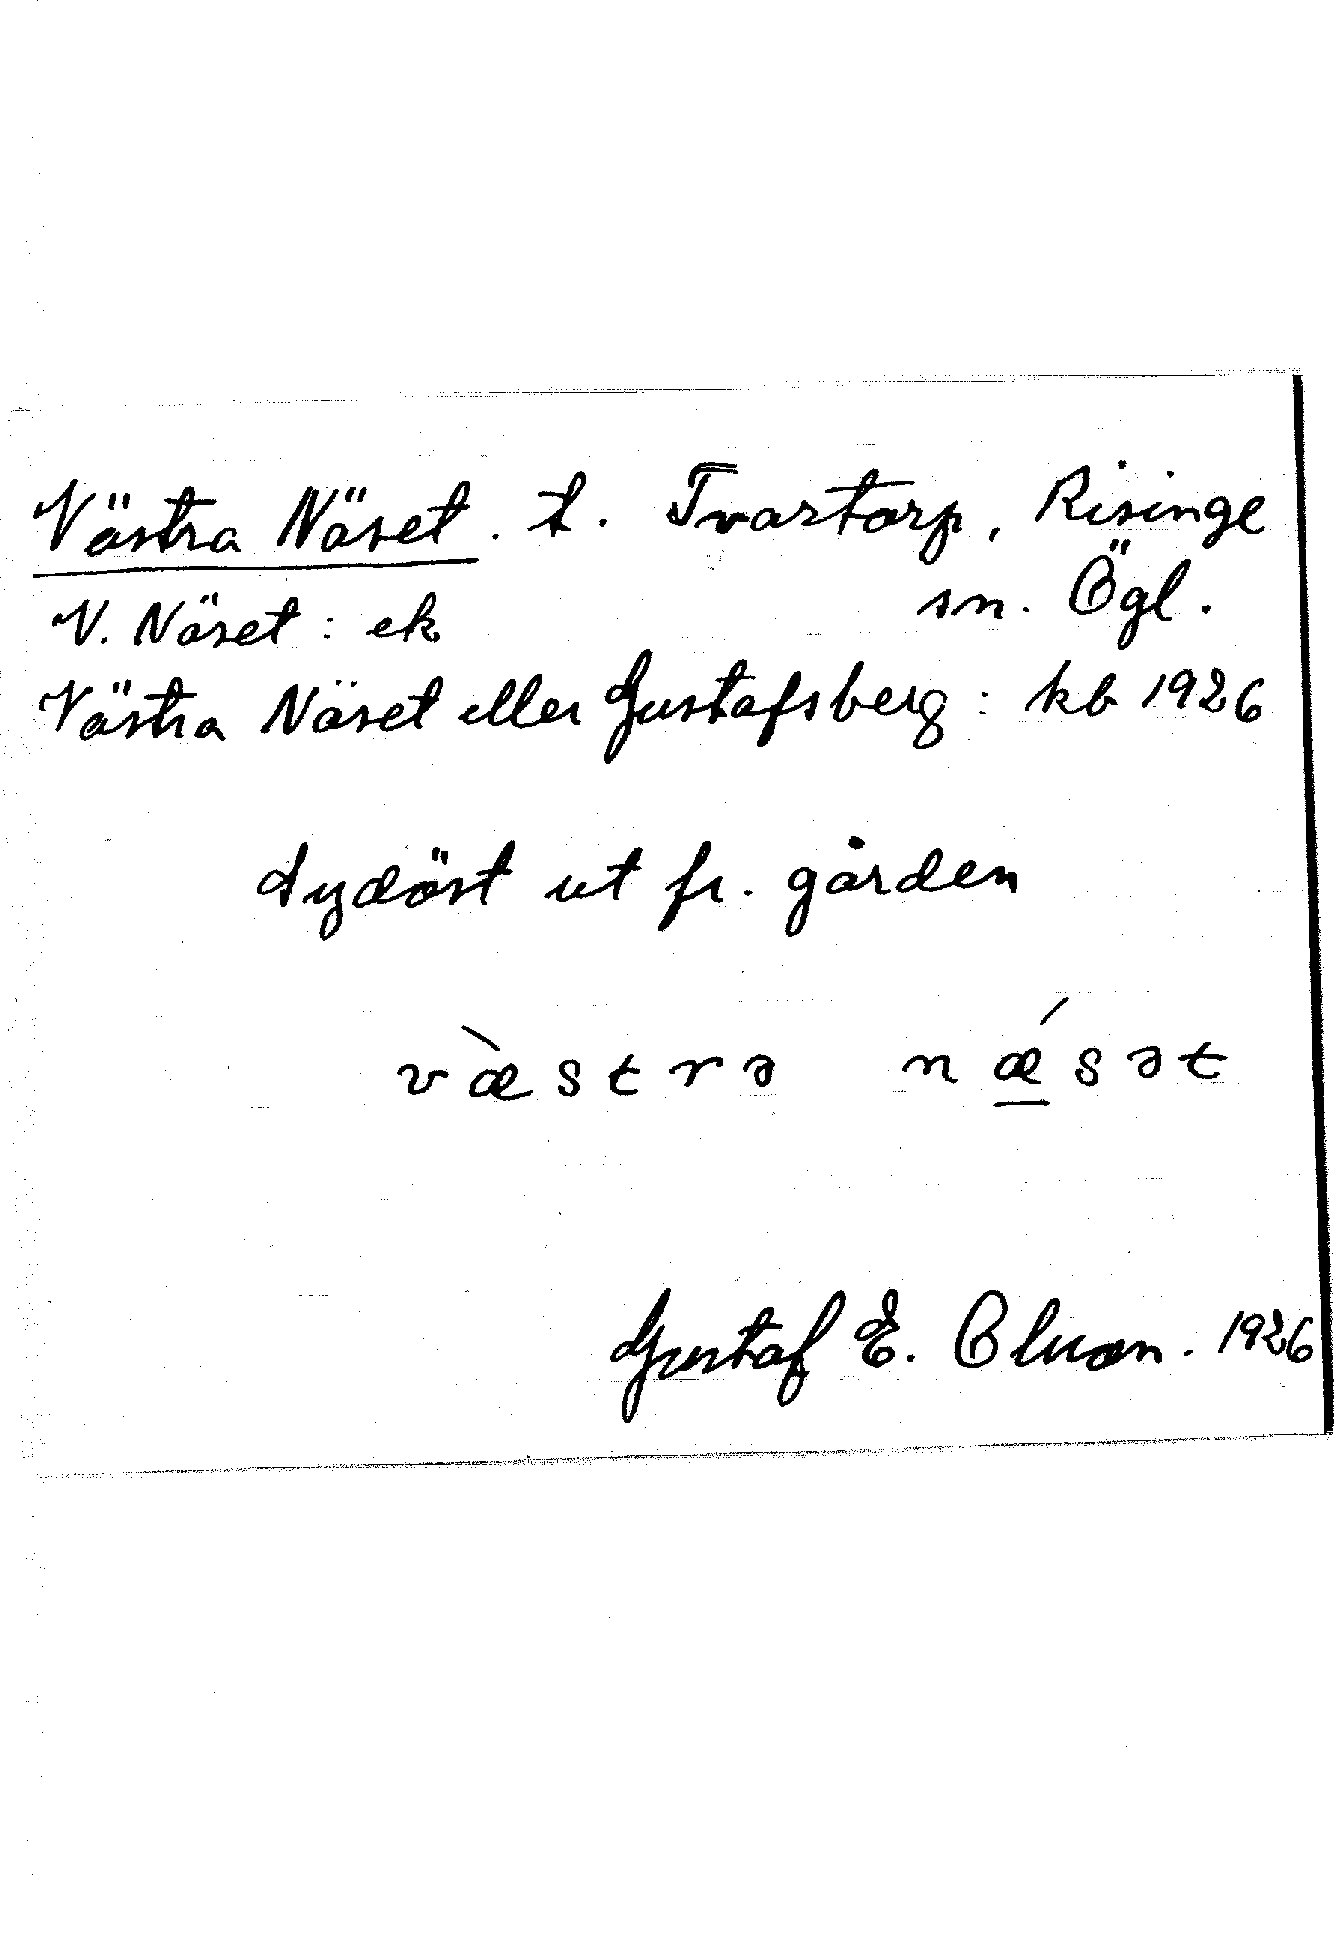 Västra Näset. t. Tvartorp, Risinge
sn. Ögl.
V. Näset : ek
Västra Näset eller Gustafsberg : kb 1926
Sydöst ut fr. gården
væ̀strə nǽ̲sət
Gustaf E. 1926